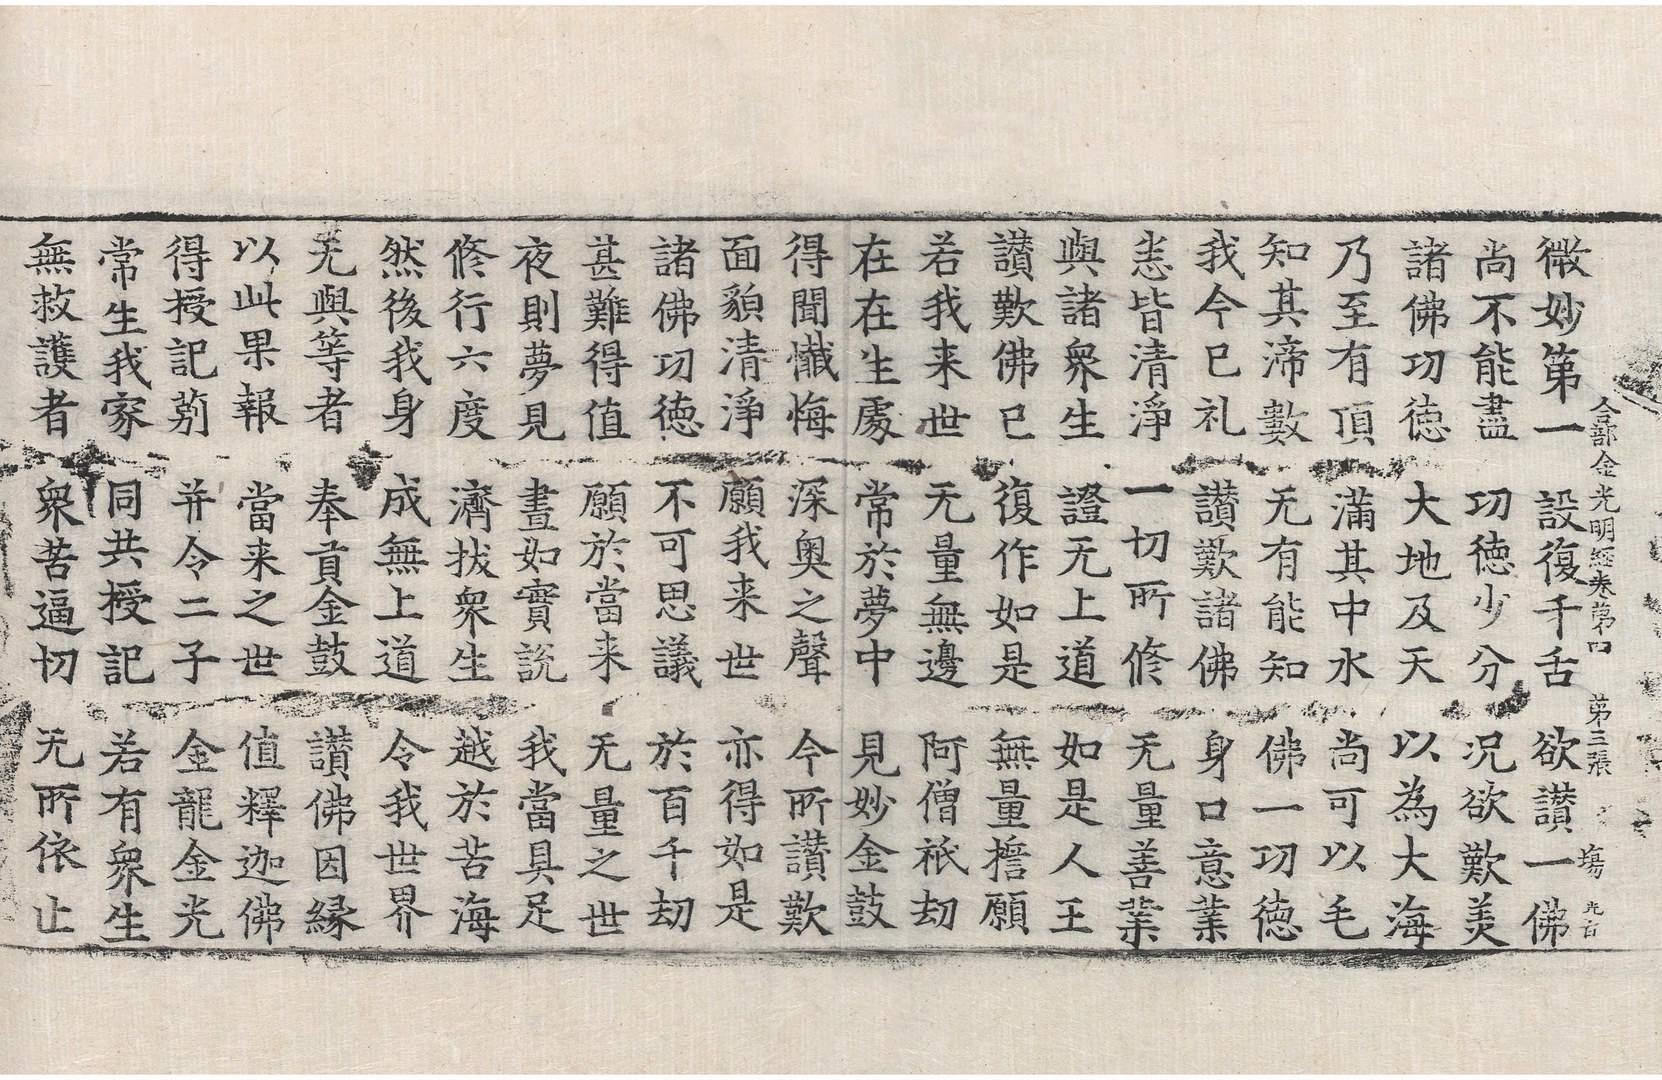 合部金光明經卷第四　第三張　塲　光右
微妙第一　設復千舌　欲讃一佛
尚不能盡　功徳少分　况欲歎美
諸佛功徳　大地及天　以為大海
乃至有頂　滿其中水　尚可以毛
知其渧數　无有能知　佛一功徳
我今已礼　讃歎諸佛　身口意業
悉皆清淨　一切所修　无量善業
與諸衆生　證无上道　如是人王
讃歎佛已　復作如是　無量擔願
若我来世　无量無邊　阿僧祇劫
在在生處　常於夢中　見妙金鼓
得聞懺悔　深奥之聲　今所讃歎
面貌清淨　願我来世　亦得如是
諸佛功徳　不可思議　於百千劫
甚難得值　願於當来　无量之世
夜則夢見　晝如實說　我當具足
修行六度　濟拔衆生　越於苦海
然後我身　成無上道　令我世界
无與等者　奉貢金鼓　讃佛因縁
以此果報　當来之世　值釋迦佛
得授記莂　并令二子　金龍金光
常生我家　同共授記　若有衆生
無救護者　衆苦逼切　无所依止